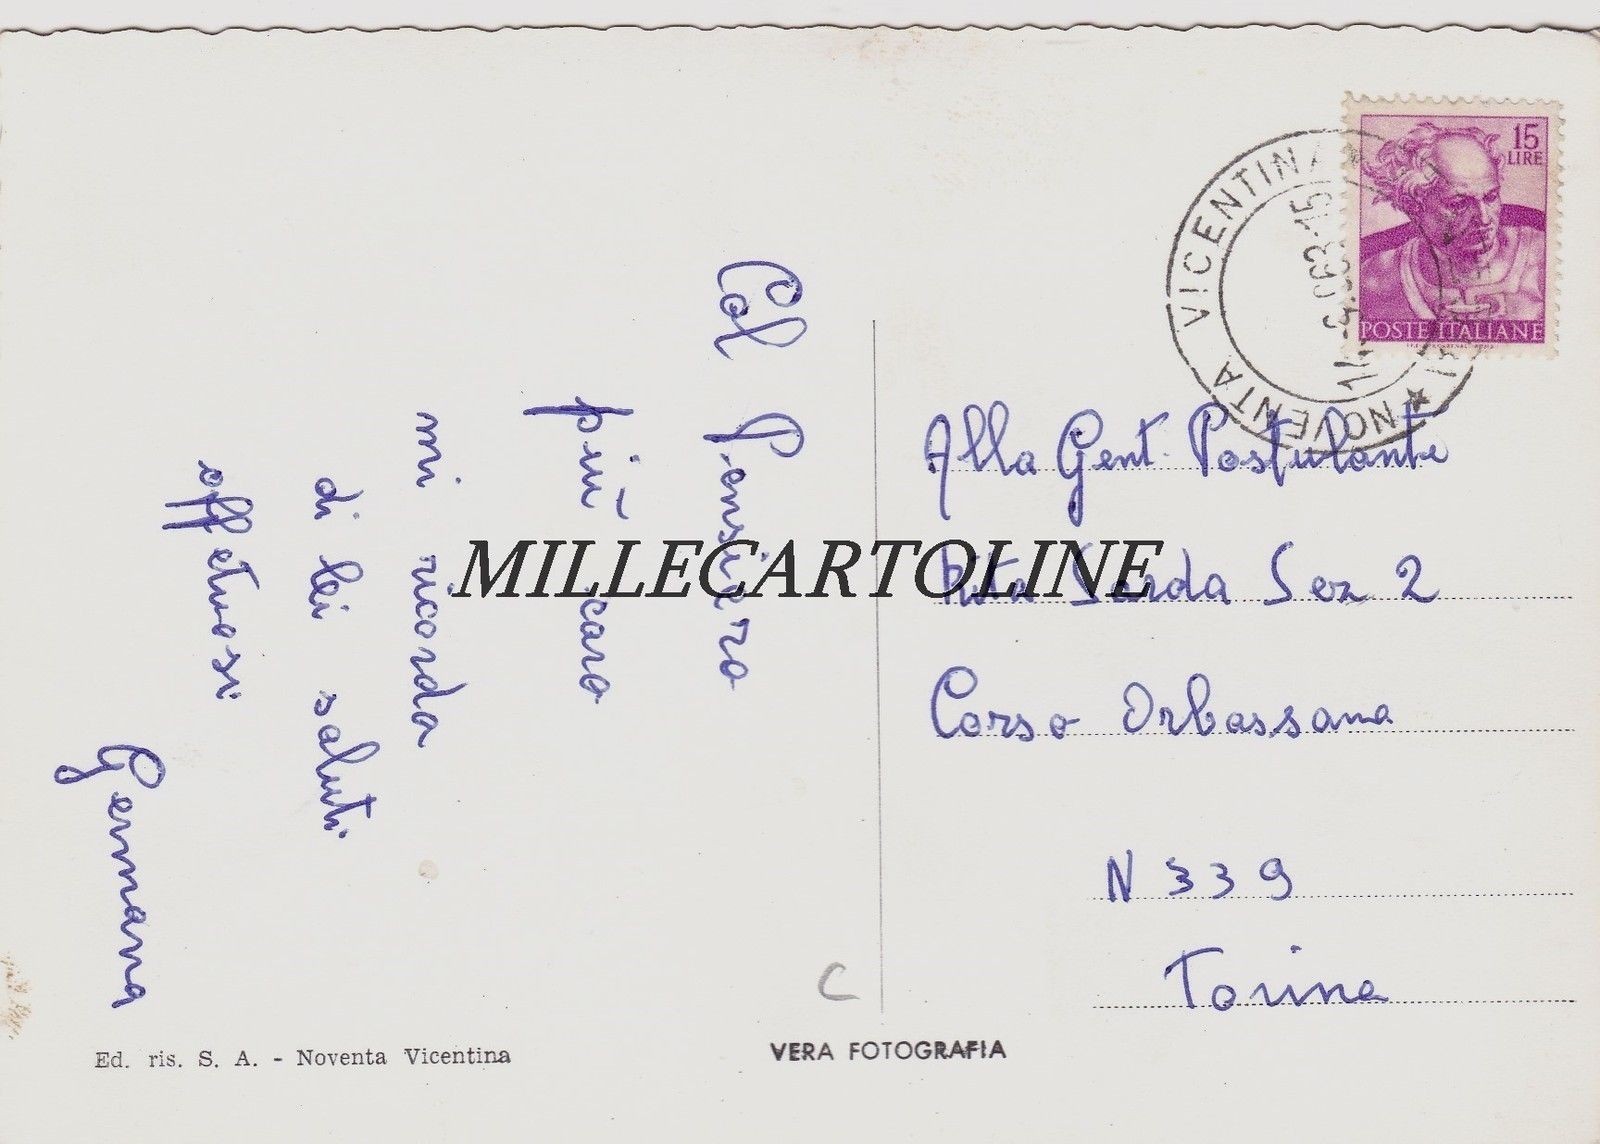 Col Pensiero
più caro
mi ricorda
di lei saluti
affetuosi
Germana
15
LIRE
POSTE ITALIANE
NOVENTA VICENTINA
Alla Gent. Postulante
Rita Sarda Sez 2
Corso Orbassano
N 339
Torino
MILLECARTOLINE
C
Ed. ris. S. A. - Noventa Vicentina
VERA FOTOGRAFIA